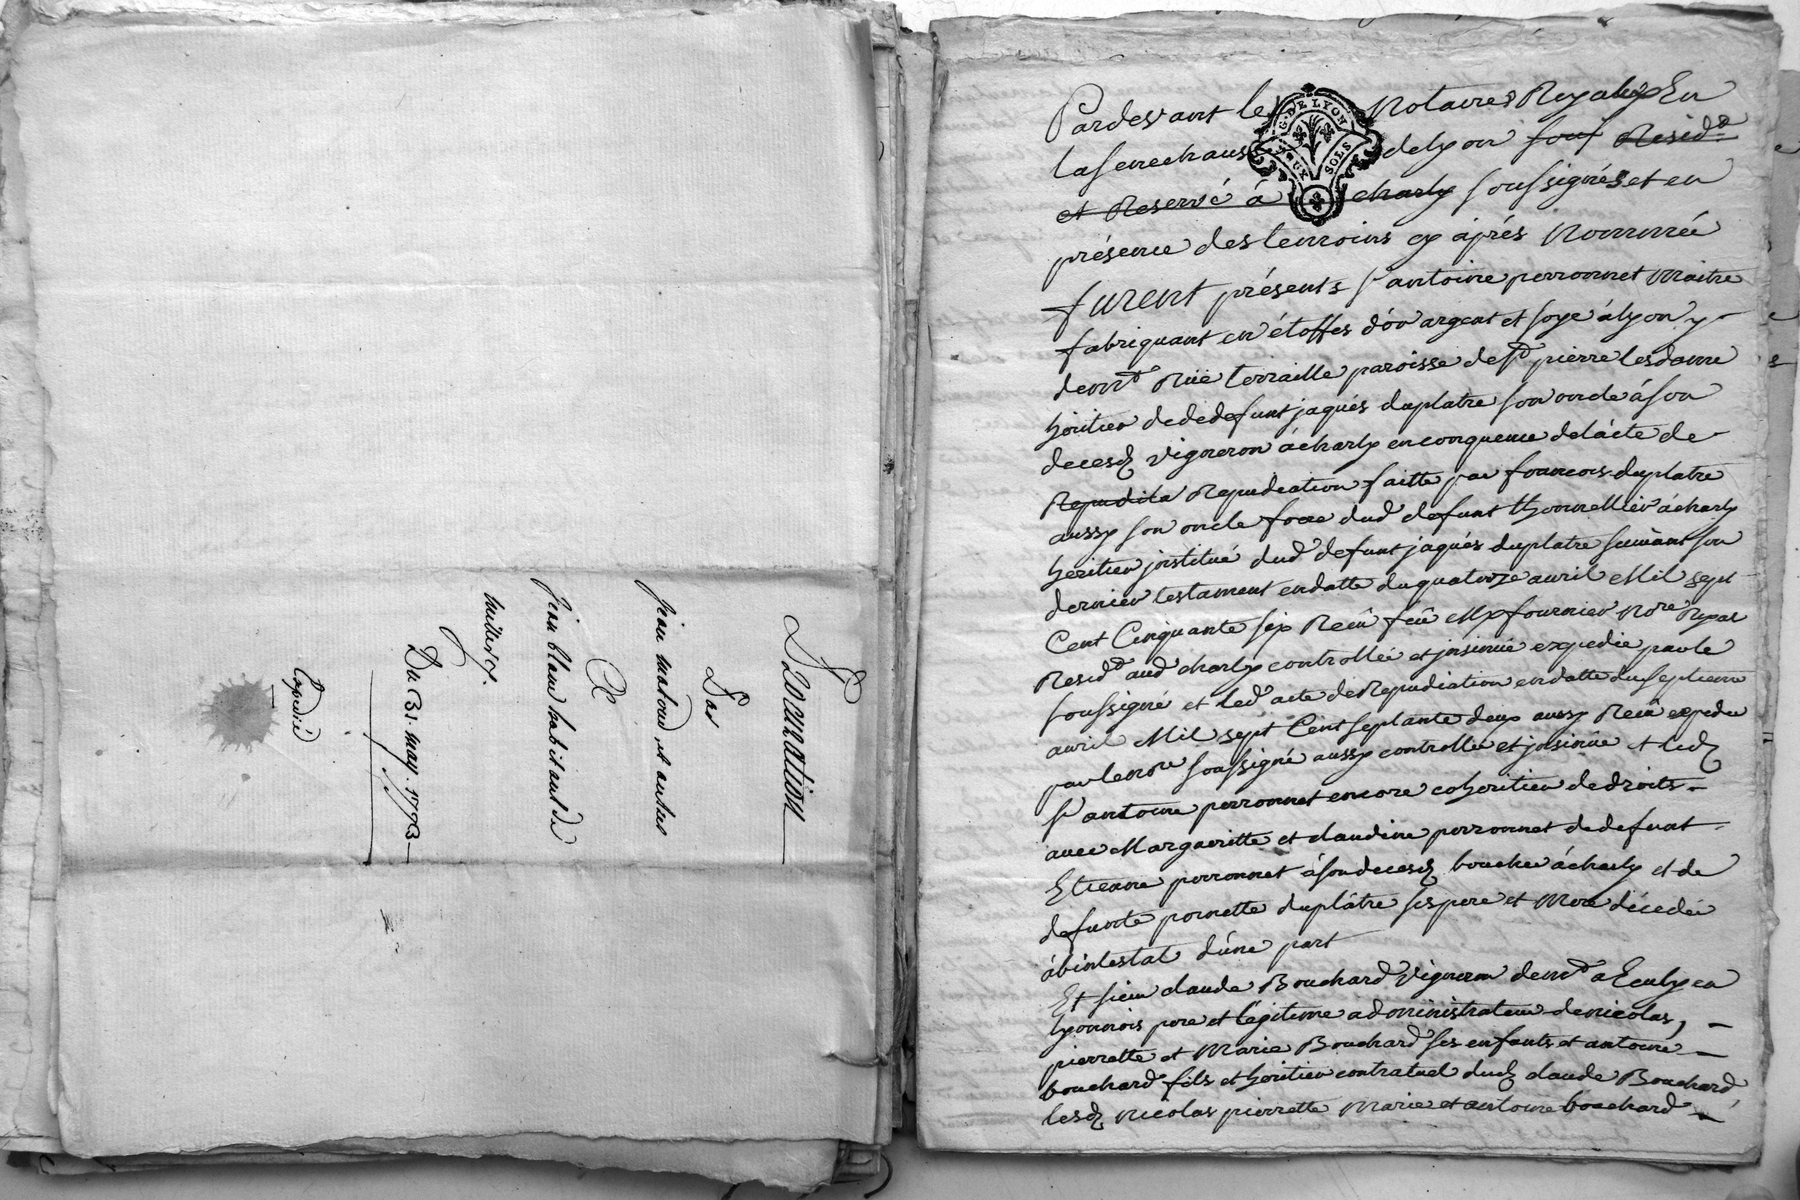 Procuration
Par
jean matoud et autres
A
jean blanc habitant de
millery.
Du 31. may 1773.
Expedié
G. DE LYON
DEUX SOLS
Pardevant les Notaires Royaux En
la senechaussée de lyon sous Resid.t
et Reservé à charly soussignés et en
présence des temoins cy aprés Nommée
furent présents s.r antoine perronnet maitre
fabriquant en étoffes d'or argent et soye á lyon y
demt. Rüe terraille paroisse de st. pierre les dame
héritier de dedefunt jaqués duplatre son oncle á son
decesd vigneron á charly en conquence de lácte de
Repudita Repudiation faitte par francois duplatre
aussy son oncle frere dud. defunt thonnellier á charly
héritier institué dud. defunt jaqués duplatre suivant son
dernier testament en datte du quatorze avril Mil sept
Cent Cinquante six Reçû feû Me fournier No.re Royal
Resid.t aud. charly controllé et insinué expedié par le
soussigné et led. acte de Repudiation en datte du septieme
avril Mil sept Cent septante deux aussy Reçû expedié
par le no.re soussigné aussy controllé et insinüé et led.
s.r antoine perronnet encore coheritier de droits
avec Margueritte et claudine perronnet de defunt
Etienne perronnet á son decesd boucher á charly et de
defunte pernette duplâtre ses pere et Mere décedée
ábintestat d'úne part
Et sieur claude Bouchard vigneron demt. a Eculy en
lyonnois pere et légitime administrateur de nicolas,
pierrette et Marie Bouchard ses enfants et antoine
bouchard fils et héritier contratuel dud. claude Bouchard,
lesd. nicolas pierrette Marie et antoine bouchard